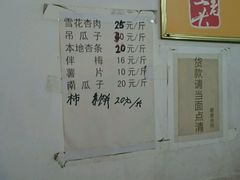 雪花杏肉 25元/斤
吊瓜子 30元/斤
本地杏条 20元/斤
伴梅 16元/斤
薯片 10元/斤
南瓜子 20元/斤
柿饼 20元/斤
货款请当面点清